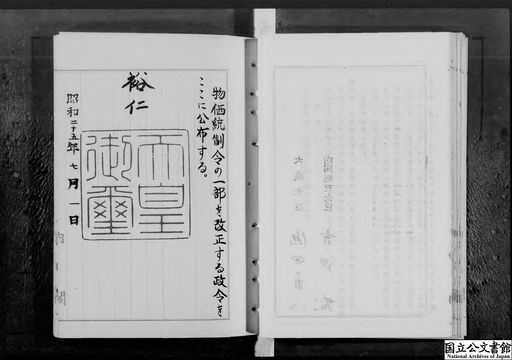 物価統制令の一部を改正する政令を
ここに公布する。
裕仁
天皇
御璽
昭和二十五年七月一日
内閣
国立公文書館
National Archives of Japan